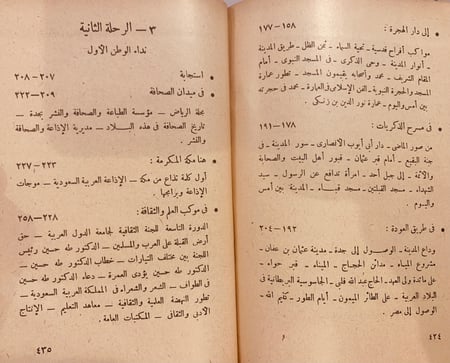 إلى دار الهجرة : ١٥٨ — ١٧٧
مواكب أفراح قدسية ـ تحية السماء ـ نحن الظل ـ طريق المدينة
ـ أنوار المدينة ـ وحى الذكرى ـ فى المسجد النبوى ـ أمام
المقام الشريف ـ محمد وأصحابه يقيمون المسجد ـ تطور عمارة
المسجد والحجرة النبوية ـ الفن الإسلامى فى العمارة ـ محمد فى حجرته
بين أمس واليوم ـ عمارة نور الدين بن زنكى .
فى مسرح الذكريات : ١٧٨ — ١٩١
من صور الماضى ـ دار أبى أيوب الأنصارى ـ سور المدينة ـ فى
جنة البقيع ـ أمام قبر عثمان ـ قبور أهل البيت والصحابة
والأئمة ـ إلى جبل أحد ـ امرأة تدافع عن الرسول ـ سيد
الشهداء ـ مسجد القبلتين ـ مسجد قباء ـ المدينة بين أمس
واليوم .
فى طريق العودة : ١٩٢ — ٢٠٤
وداع المدينة ـ الوصول إلى جدة ـ مدينة عثمان بن عفان ـ
مشروع المياه ـ مدائن الحجاج ـ الميناء ـ قبر حواء ـ
على مائدة ولى العهد ـ الحاج عبد الله فلبى ـ الجاسوسية البريطانية فى
البلاد العربية ـ على الطائر الميمون ـ أيام الطور ـ كليم الله ـ
الوصول إلى مصر .
٤٣٤
٣ — الرحلة الثانية
نداء الوطن الأول
استجابة ٢٠٧ — ٢٠٨
فى ميدان الصحافة ٢٠٩ — ٢٢٢
مجلة الرياض ـ مؤسسة الطباعة والصحافة والنشر بجدة ـ
تاريخ الصحافة فى هذه البلاد ـ مديرية الإذاعة والصحافة
والنشر .
هنا مكة المكرمة : ٢٢٣ — ٢٢٧
أول كلمة تذاع من مكة ـ الإذاعة العربية السعودية ـ موجات
الإذاعة وبرامجها .
فى موكب العلم والثقافة : ٢٢٨ — ٢٥٨
الدورة التاسعة للجنة الثقافية لجامعة الدول العربية ـ حق
أرض القبلة على العرب والمسلمين ـ الدكتور طه حسين رئيس
اللجنة بين مختلف التيارات ـ خطاب الدكتور طه حسين ـ
الدكتور طه حسين يؤدى العمرة ـ دعاء الدكتور طه حسين
فى الطواف ـ الشعر والشعراء فى المملكة العربية السعودية ـ
تطور النهضة العلمية والثقافية ـ معاهد التعليم ـ الإنتاج
الأدبى والثقافى ـ المكتبات العامة .
٤٣٥